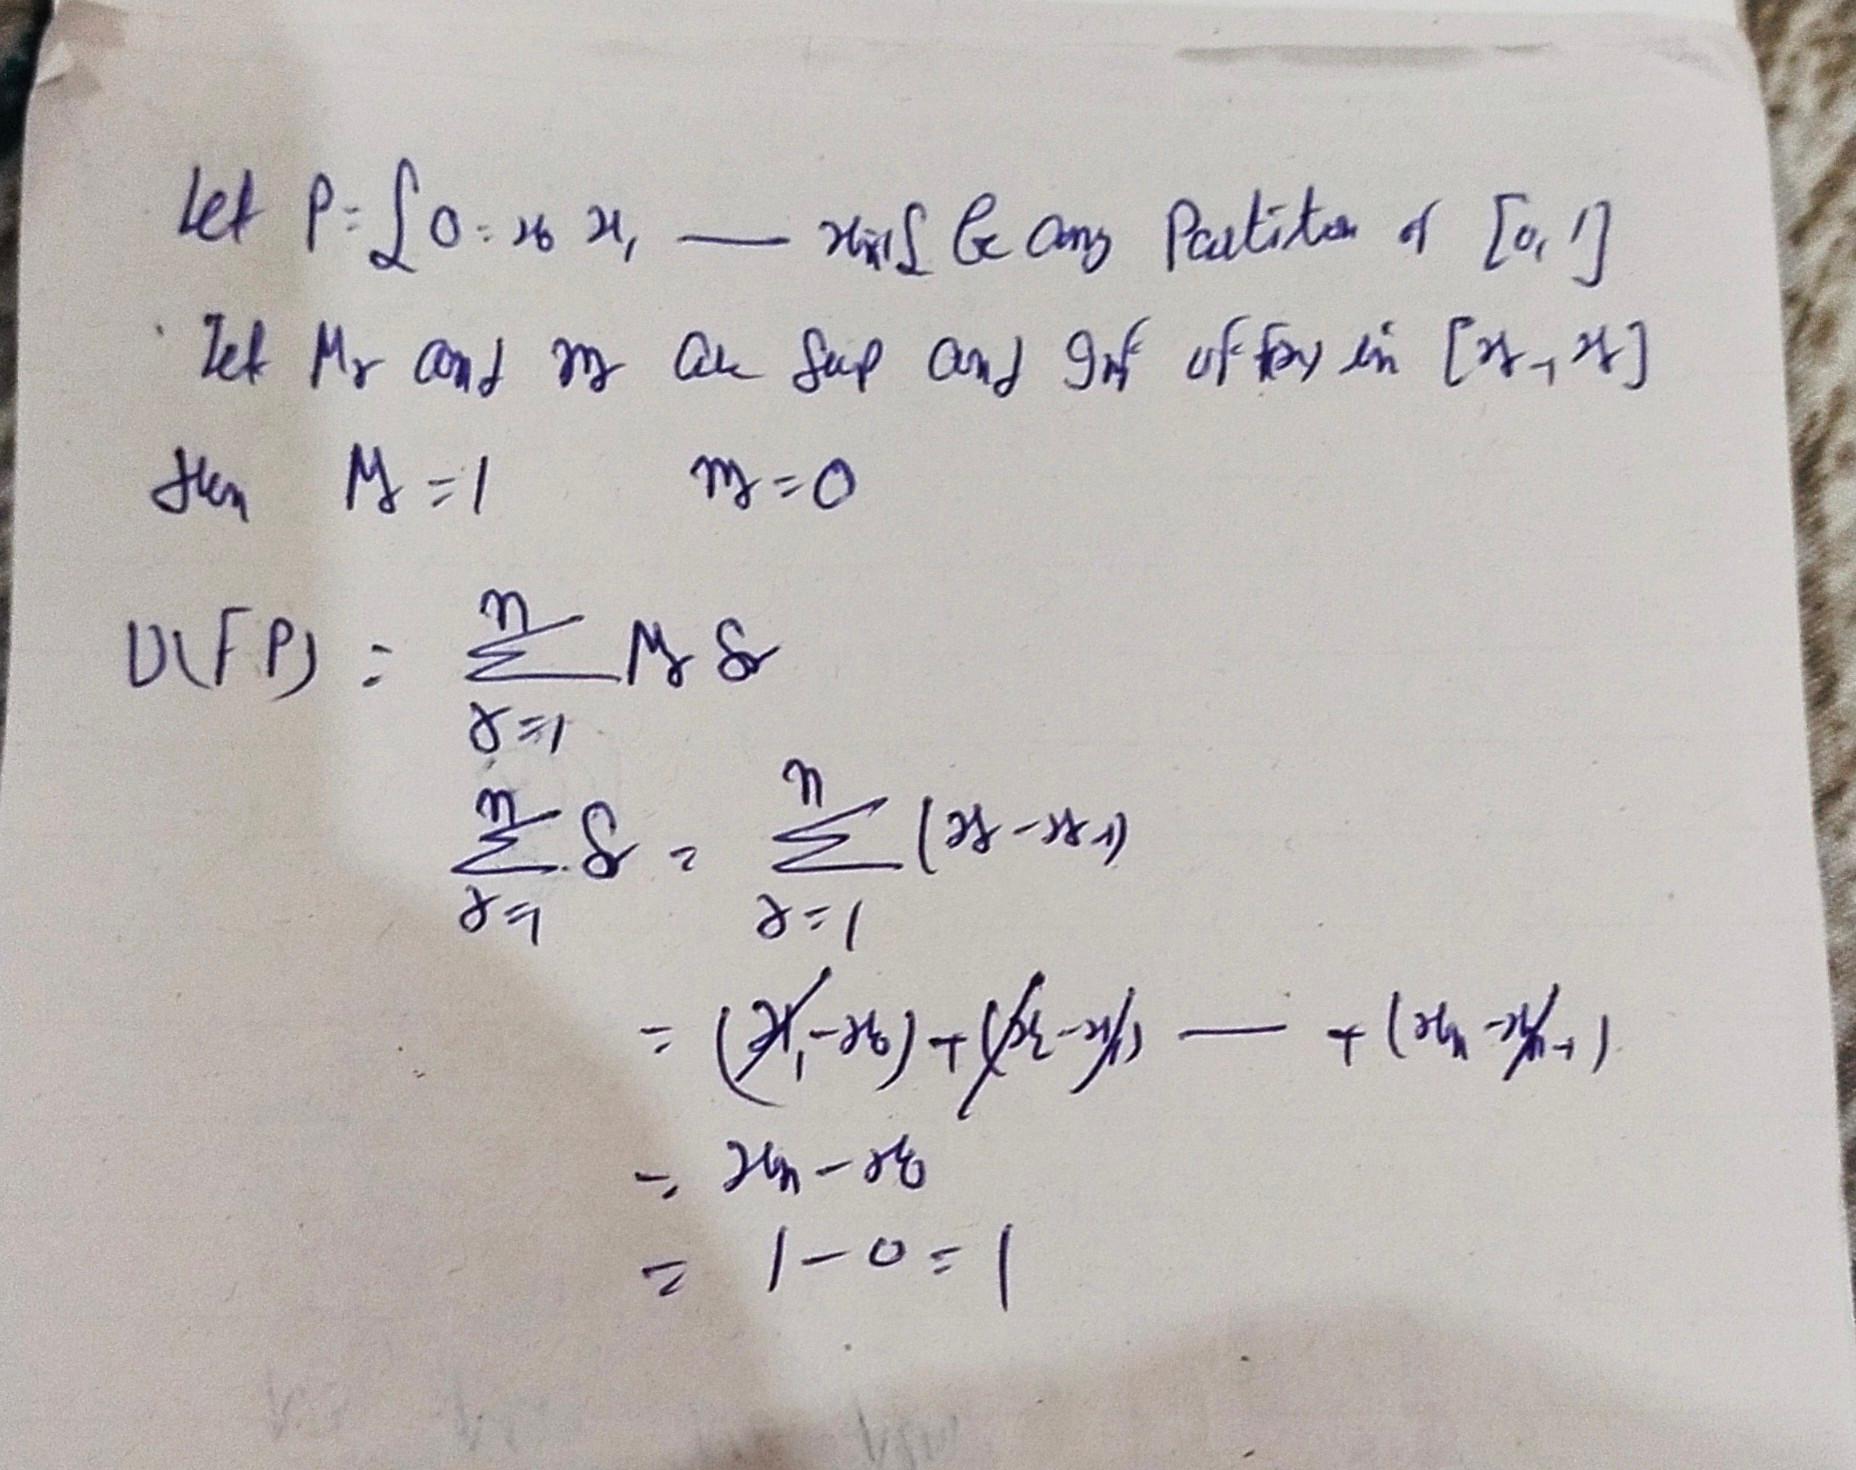 Let P = { 0 = x₀ x₁ — xₙ=1 } be any Partition of [0, 1]
Let Mr and mr are Sup and Inf of f(x) in [xr-1, xr]
then Mr = 1 mr = 0
U(F P) = ∑_{r=1}^{n} Mr δr
∑_{r=1}^{n} δr = ∑_{r=1}^{n} (xr - xr-1)
= (x₁ - x₀) + (x₂ - x₁) — + (xₙ - xₙ₋₁)
= xₙ - x₀
= 1 - 0 = 1